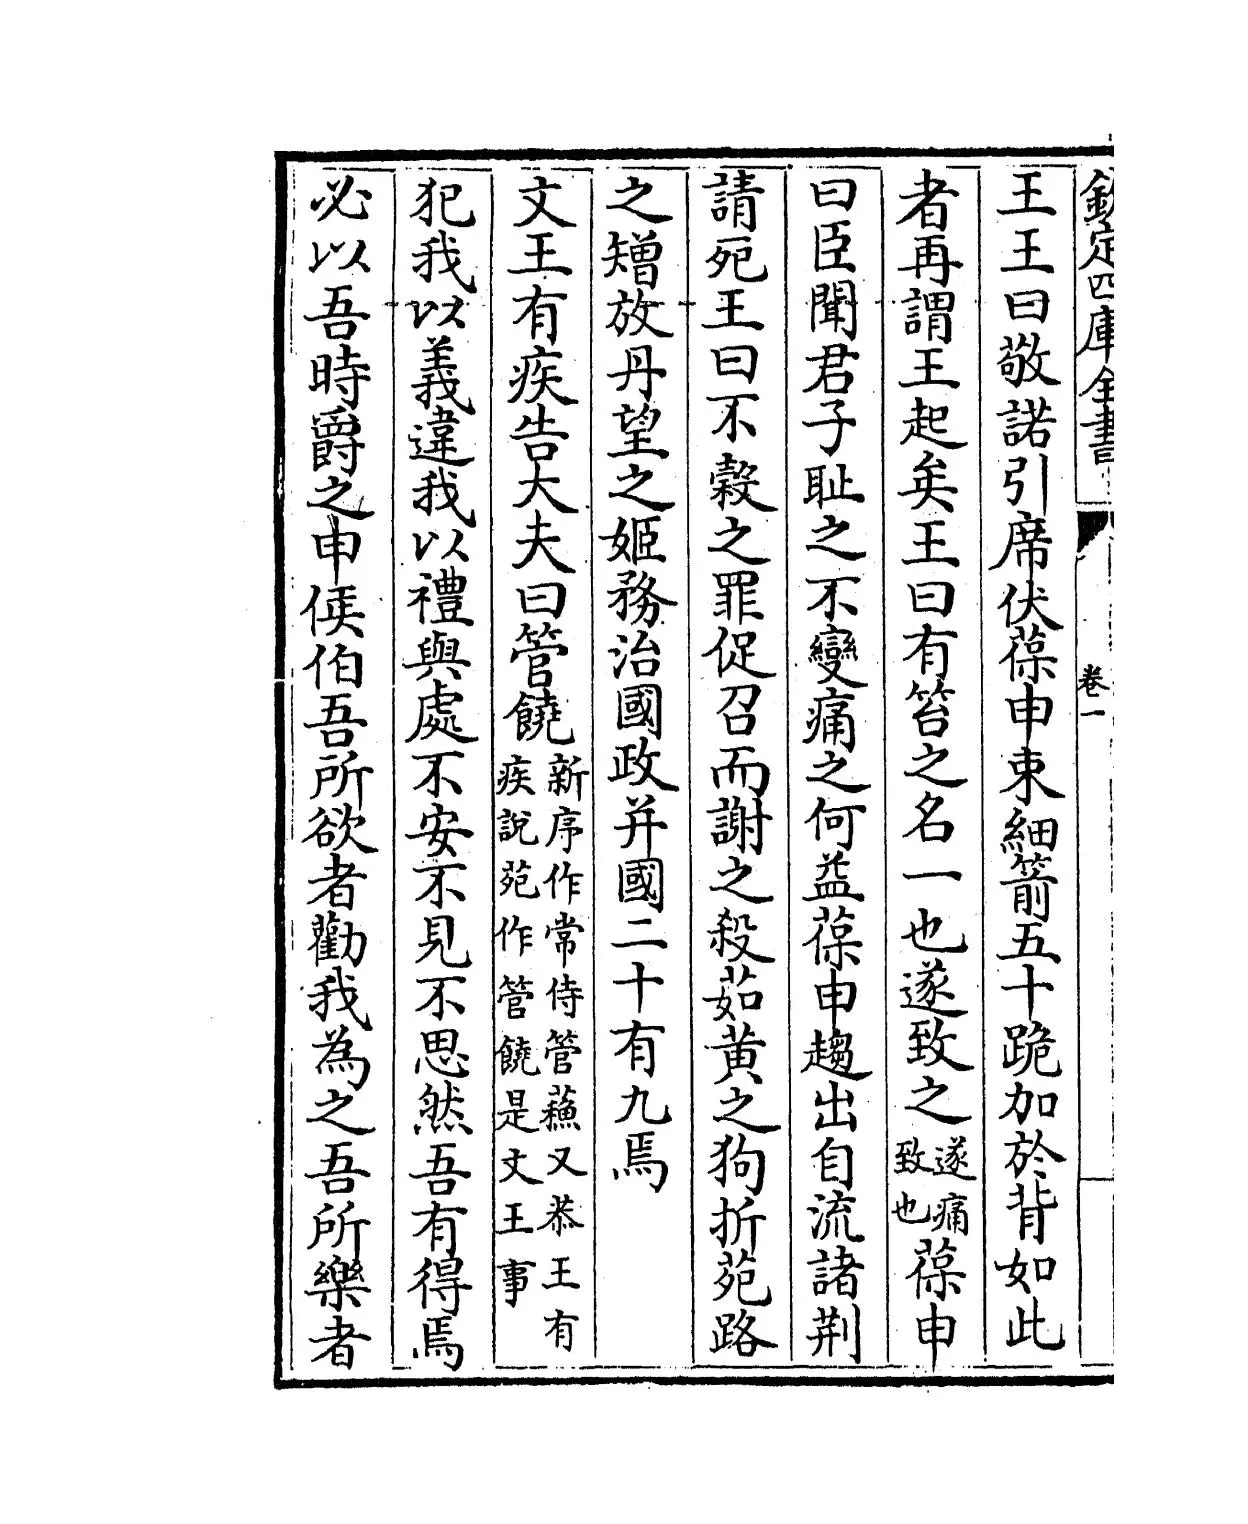 欽定四庫全書
卷一
王王曰敬諾引席伏葆申束細箭五十跪加於背如此
者再謂王起矣王曰有笞之名一也遂致之遂痛致也葆申
曰臣聞君子恥之不變痛之何益葆申趨出自流諸荆
請死王曰不穀之罪促召而謝之殺茹黃之狗折菀路
之矰放丹望之姬務治國政并國二十有九焉
文王有疾告大夫曰管饒新序作常侍管蘓又恭王有疾說苑作管饒是文王事
犯我以義違我以禮與處不安不見不思然吾有得焉
必以吾時爵之申侯伯吾所欲者勸我為之吾所樂者